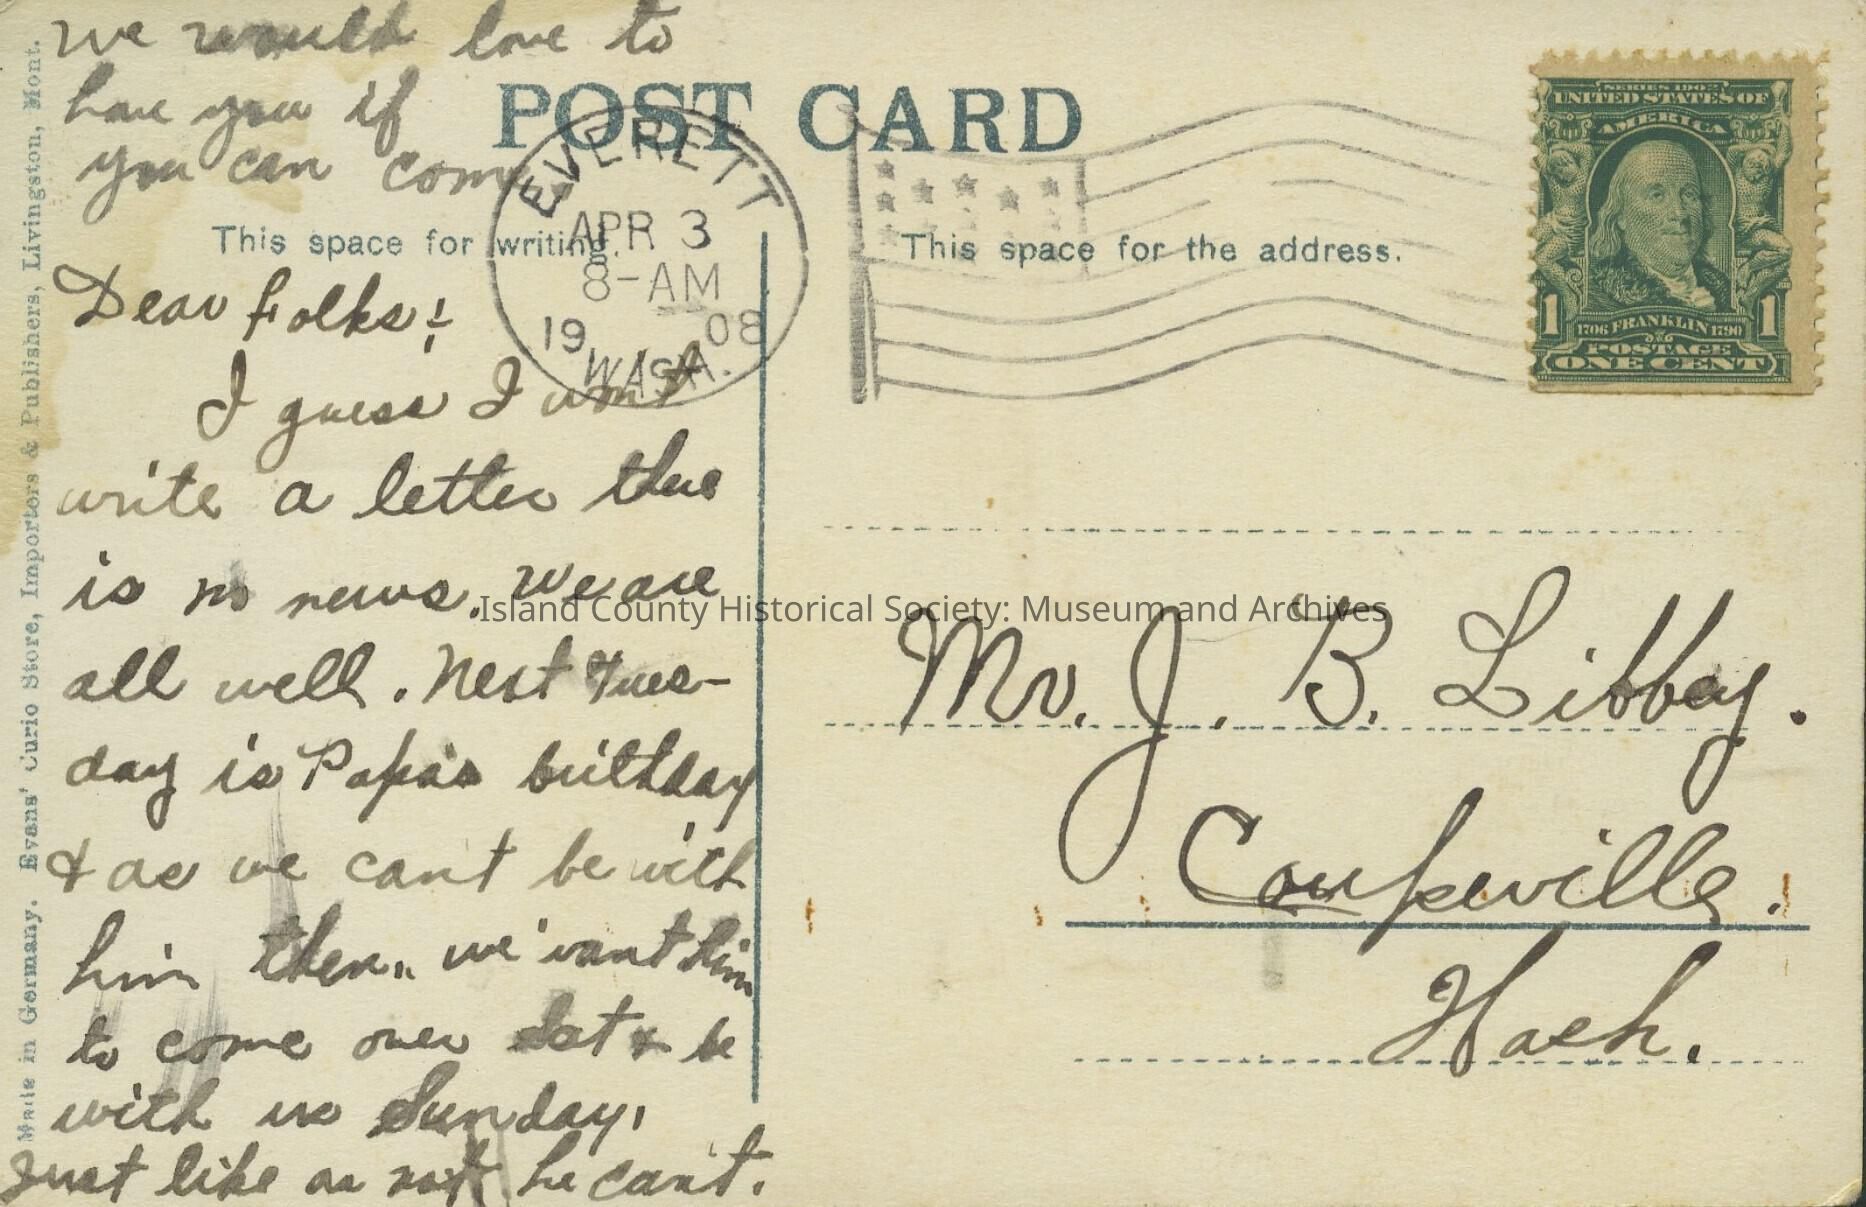 we would love to
have you if
you can come
POST CARD
EVERETT
APR 3
8-AM
19 08
WASH.
This space for writing.
This space for the address.
SERIES 1902
UNITED STATES OF
AMERICA
1 1
1706 FRANKLIN 1790
POSTAGE
ONE CENT
Dear Folks:
I guess I wont
write a letter there
is no news. We are
all well. Next Tues-
day is Papa's birthday
& as we can't be with
him then, we want him
to come over Sat & be
with us Sunday,
Just like as not he can't.
Mr. J. B. Libbey.
Coupeville.
Wash.
Made in Germany. Evans' Curio Store, Importers & Publishers, Livingston, Mont.
Island County Historical Society: Museum and Archives